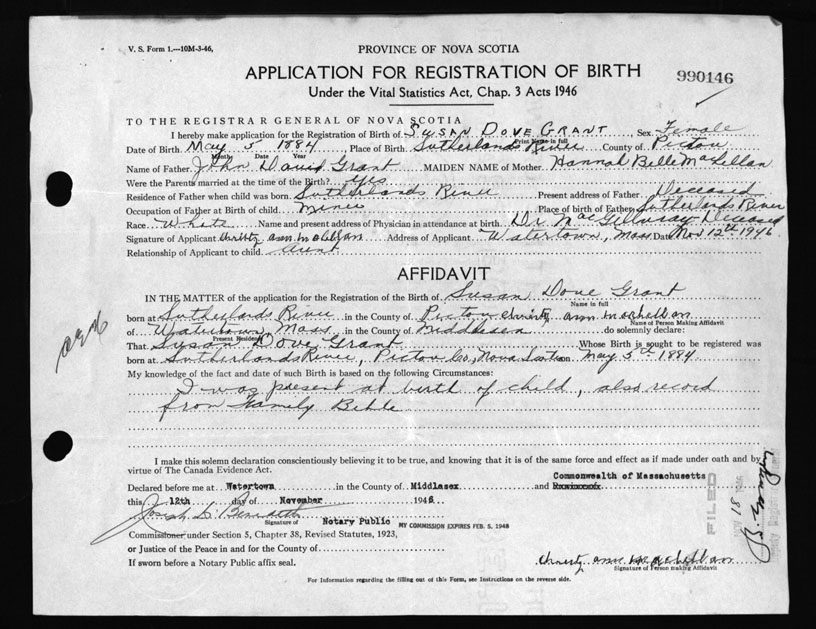 V. S. Form 1.—10M-3-46,
PROVINCE OF NOVA SCOTIA
APPLICATION FOR REGISTRATION OF BIRTH
990146
Under the Vital Statistics Act, Chap. 3 Acts 1946
TO THE REGISTRAR GENERAL OF NOVA SCOTIA
I hereby make application for the Registration of Birth of SUSAN DOVE GRANT Sex Female
Print Name in full
Date of Birth May 5 1884 Place of Birth Sutherlands River County of Pictou
Month Date Year
Name of Father John David Grant MAIDEN NAME of Mother Hannah Belle MacLellan
Were the Parents married at the time of the Birth? yes
Residence of Father when child was born Sutherlands River Present address of Father Deceased
Occupation of Father at Birth of child Miner Place of Birth of Father Sutherlands River
Race White Name and present address of Physician in attendance at birth Dr MacGillivray Deceased
Signature of Applicant Christy ann mclellan Address of Applicant Watertown, Mass Date Nov 12th 1946
Relationship of Applicant to child aunt
AFFIDAVIT
IN THE MATTER of the application for the Registration of the Birth of Susan Dove Grant
Name in full
born at Sutherlands River in the County of Pictou Christy ann maclellan
Name of Person Making Affidavit
of Watertown, Mass in the County of Middlesex do solemnly declare:
Present Residence
That Susan Dove Grant Whose Birth is sought to be registered was
born at Sutherlands River, Pictou Co, Nova Scotia May 5th 1884
My knowledge of the fact and date of such Birth is based on the following Circumstances:
I was present at birth of child, also record
from Family Bible
I make this solemn declaration conscientiously believing it to be true, and knowing that it is of the same force and effect as if made under oath and by
virtue of The Canada Evidence Act.
Declared before me at Watertown in the County of Middlesex and Commonwealth of Massachusetts
this 12th day of November 1946
Signature of Notary Public MY COMMISSION EXPIRES FEB. 5, 1948
Commissioner under Section 5, Chapter 38, Revised Statutes, 1923,
or Justice of the Peace in and for the County of
If sworn before a Notary Public affix seal.
Christy ann maclellan
Signature of Person making Affidavit
For Information regarding the filling out of this Form, see Instructions on the reverse side.
FILED